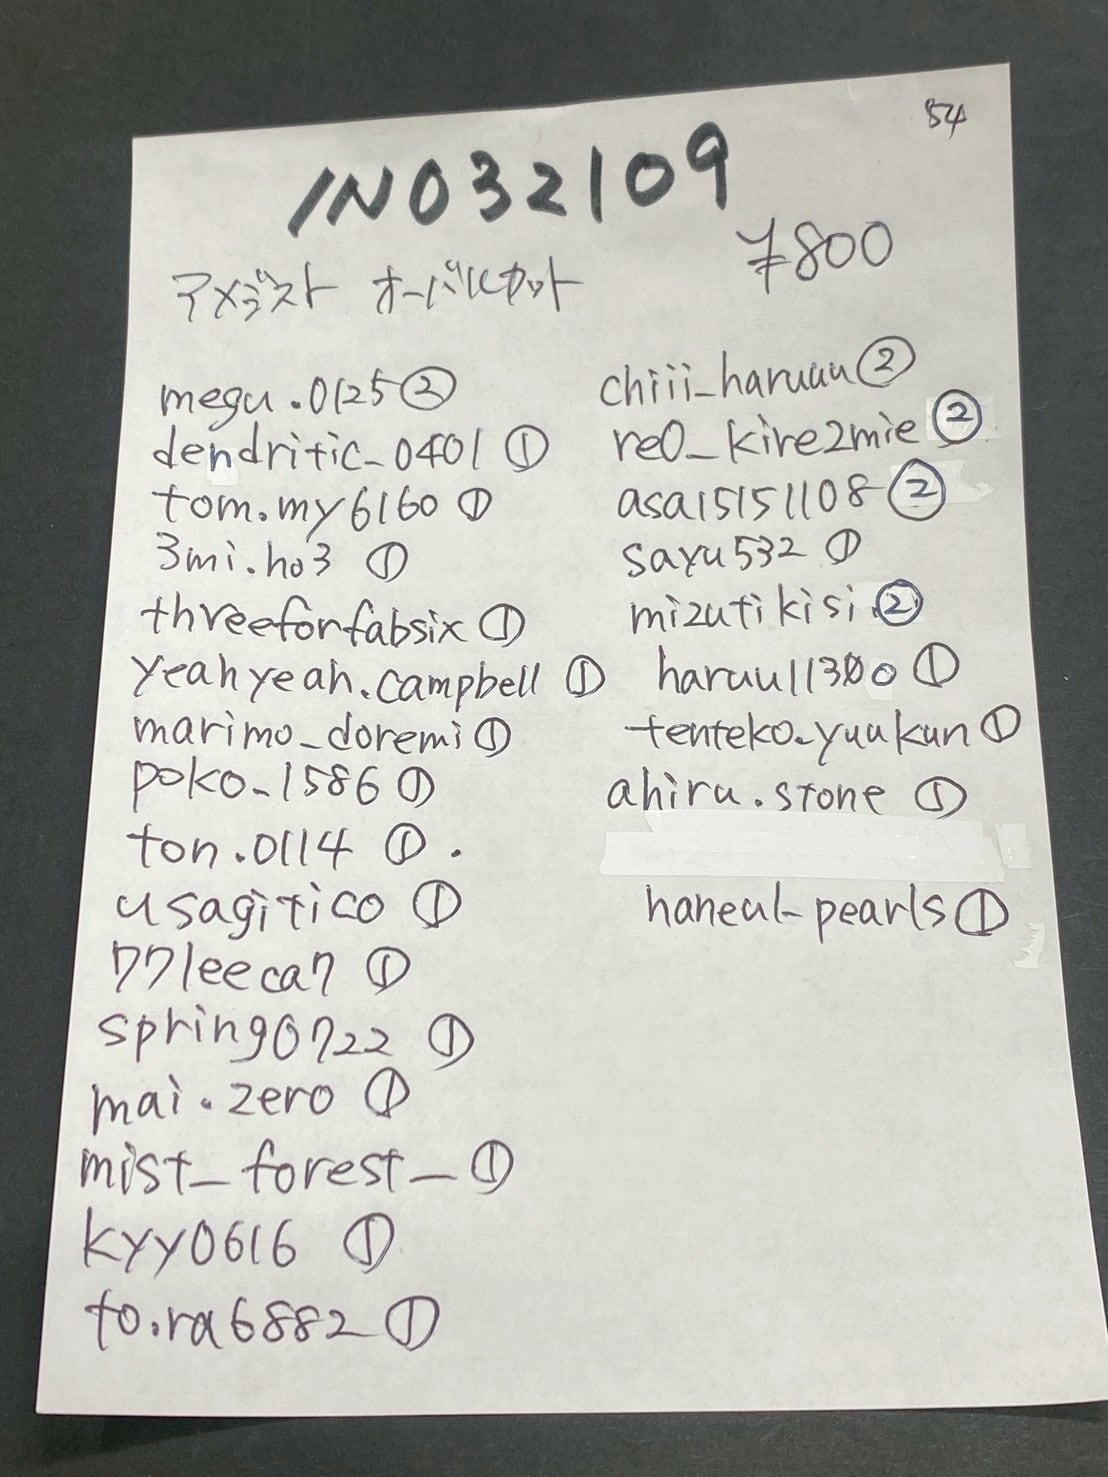 54
IN032109
¥800
アメジスト オーバルカット
megu.0125②
dendritic_0401 ①
tom.my6160 ①
3mi.ho3 ①
threeforfabsix ①
yeahyeah.campbell ①
marimo_doremi ①
poko_1586 ①
ton.0114 ① .
usagitico ①
77leeca7 ①
spring0722 ①
mai.zero ①
mist_forest_ ①
kyy0616 ①
to.ra6882 ①
chiii_haruuu②
re0_kire2mie ②
asa15151108 ②
sayu532 ①
mizutikisi.②
①
tenteko.yuukun ①
ahiru.stone ①
haneul_pearls ①